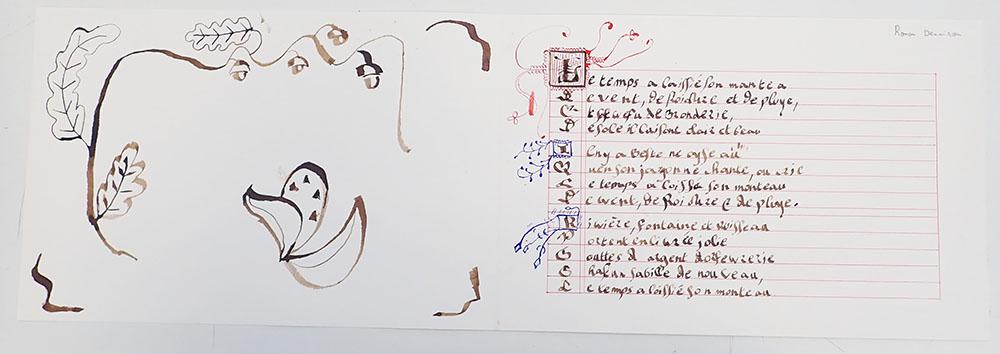 Le temps a laissé son manteau
De vent, de froidure et de pluye,
de Broderie,
De soleil luisant clair et beau
Il n'y a Beste ne oyseau
Qu'en son jargonne chante, ou crie
Le temps a laissé son manteau
De vent, de froidure et de pluye.
Rivière, fontaine et ruisseau
Portent en livrée jolie
Gouttes d argent d'orfevrerie
sabille de nouveau,
Le temps a laissé son manteau